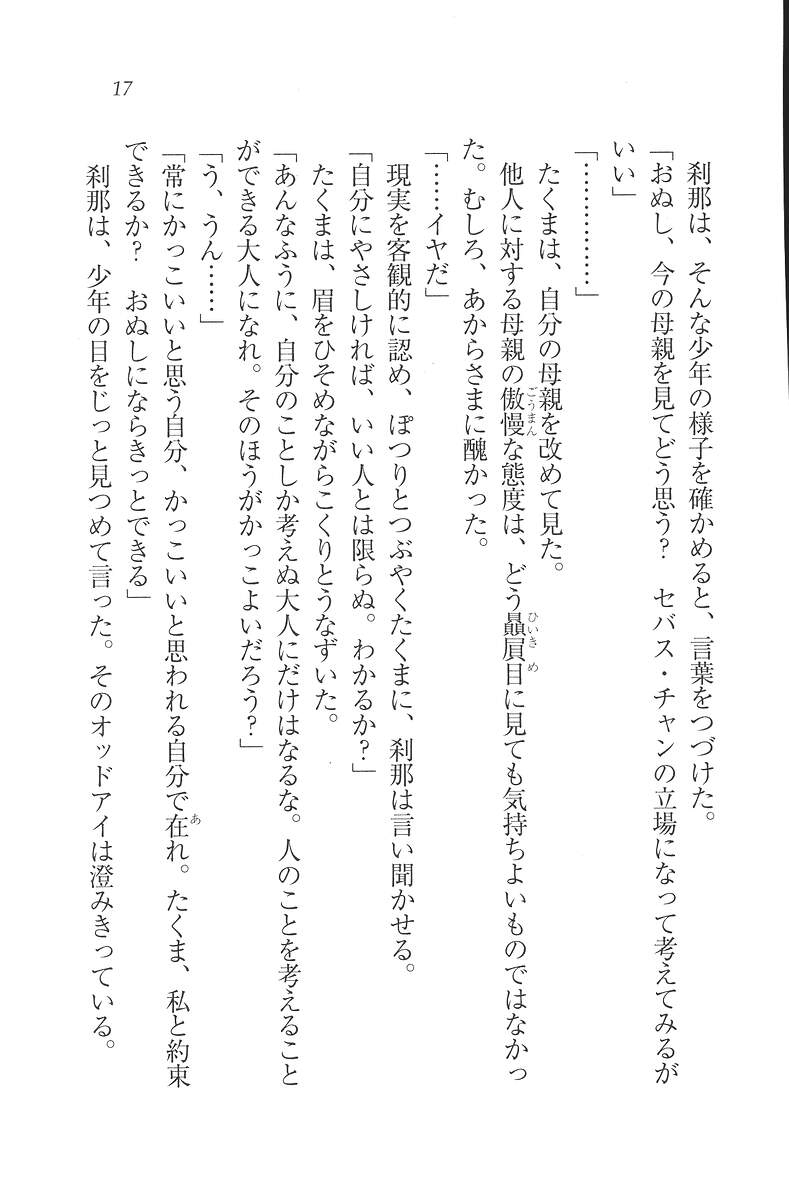 17
刹那は、そんな少年の様子を確かめると、言葉をつづけた。
「おぬし、今の母親を見てどう思う？　セバス・チャンの立場になって考えてみるが
いい」
「……………」
たくまは、自分の母親を改めて見た。
他人に対する母親の傲慢な態度は、どう贔屓目に見ても気持ちよいものではなかっ
ごうまん
ひいきめ
た。むしろ、あからさまに醜かった。
「……イヤだ」
現実を客観的に認め、ぽつりとつぶやくたくまに、刹那は言い聞かせる。
「自分にやさしければ、いい人とは限らぬ。わかるか？」
たくまは、眉をひそめながらこくりとうなずいた。
「あんなふうに、自分のことしか考えぬ大人にだけはなるな。人のことを考えること
ができる大人になれ。そのほうがかっこよいだろう？」
「う、うん……」
「常にかっこいいと思う自分、かっこいいと思われる自分で在れ。たくま、私と約束
あ
できるか？　おぬしにならきっとできる」
刹那は、少年の目をじっと見つめて言った。そのオッドアイは澄みきっている。